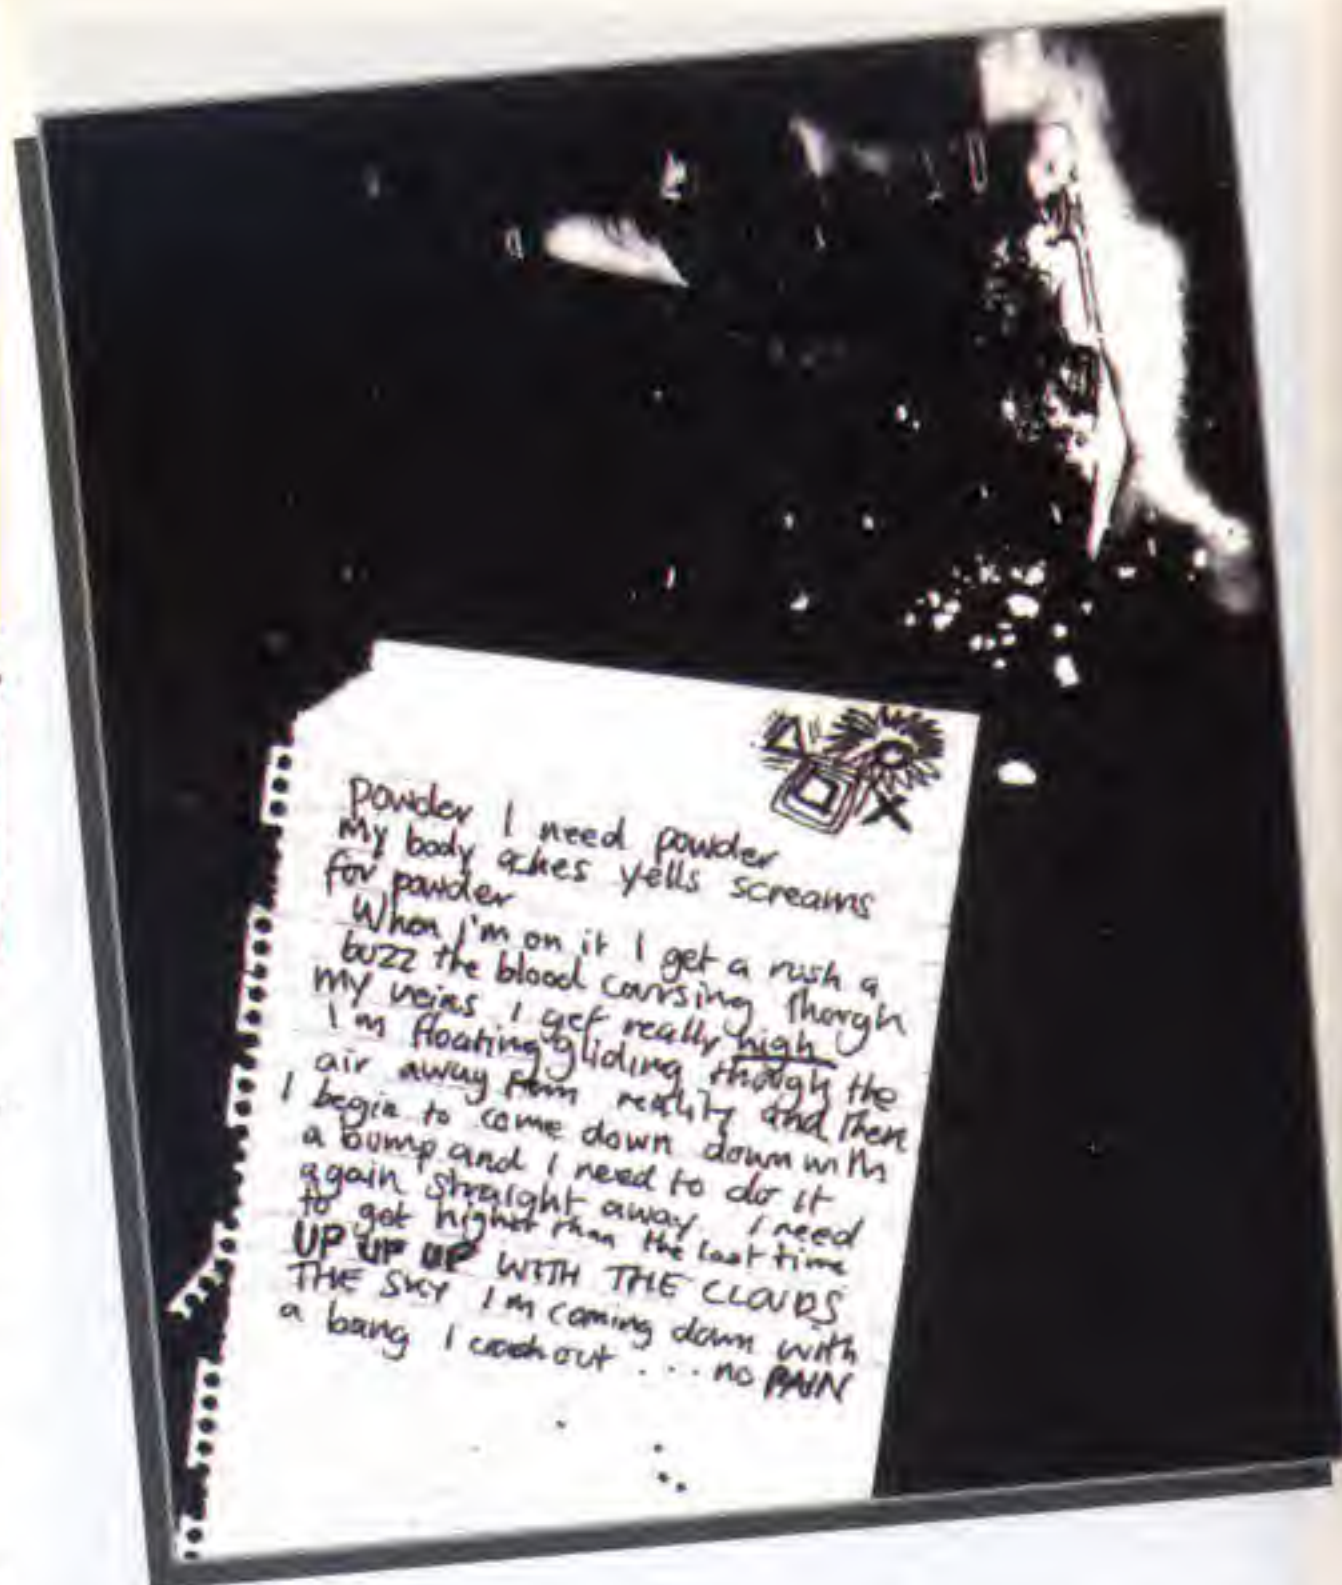 powder I need powder
My body aches yells screams
for powder
When I'm on it I get a rush a
buzz the blood coursing though
my veins I get really high
I'm floating gliding though the
air away from reality and then
I begin to come down down with
a bump and I need to do it
again straight away. I need
to get higher than the last time
UP UP UP WITH THE CLOUDS
THE SKY I'm coming down with
a bang I crash out . . . no PAIN